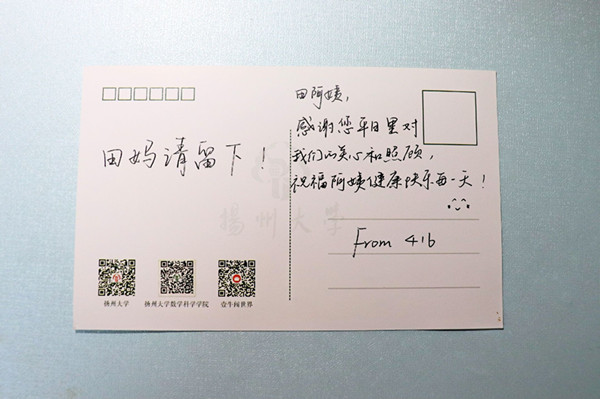 田妈请留下！
田阿姨，
感谢您平日里对
我们的关心和照顾，
祝福阿姨健康快乐每一天！
From 416
揚州大学
扬州大学
扬州大学数学科学学院
壹牛闯世界